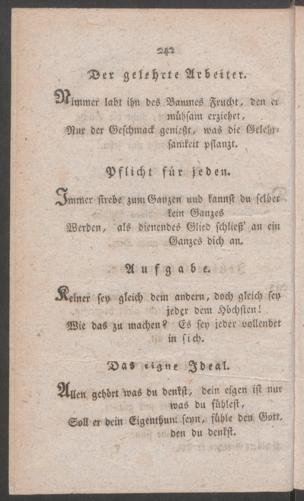 242
Der gelehrte Arbeiter.
Nimmer labt ihn des Baumes Frucht, den er
mühsam erziehet,
Nur der Geschmack genießt, was die Gelehr-
samkeit pflanzt.
Pflicht für jeden.
Immer strebe zum Ganzen und kannst du selber
kein Ganzes
Werden, als dienendes Glied schließ' an ein
Ganzes dich an.
Aufgabe.
Keiner sey gleich dem andern, doch gleich sey
jeder dem Höchsten!
Wie das zu machen? Es sey jeder vollendet
in sich.
Das eigne Ideal.
Allen gehört was du denkst, dein eigen ist nur
was du fühlest,
Soll er dein Eigenthum seyn, fühle den Gott,
den du denkst.